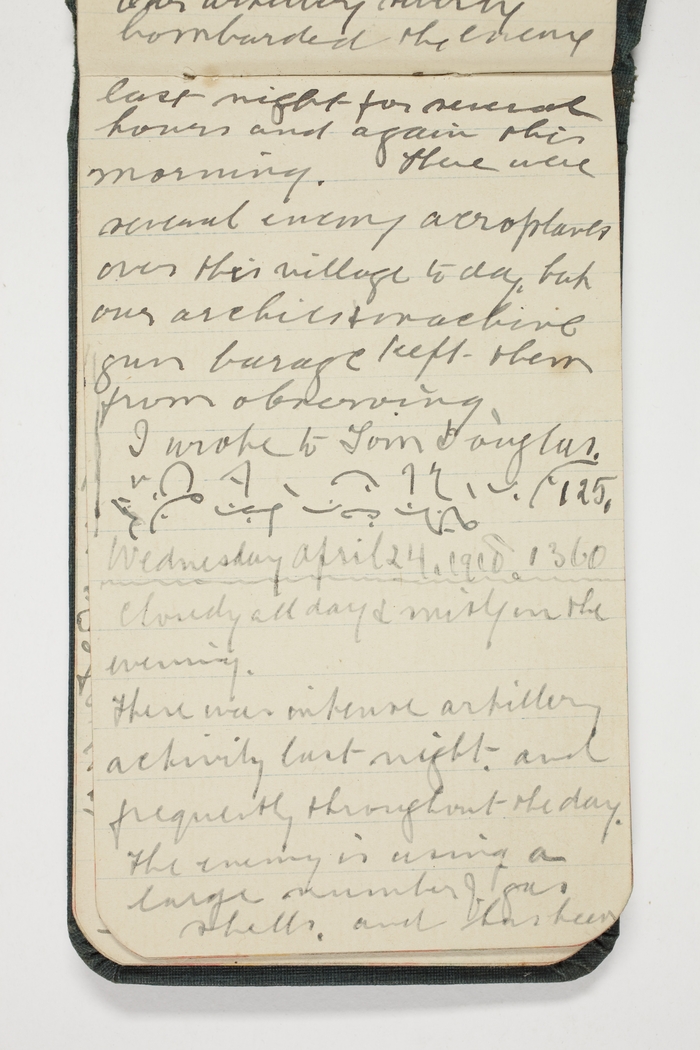 our artillery
bombarded the enemy
last night for several
hours and again this
morning. There were
several enemy aeroplanes
over this village to day, but
our archies & machine
gun barage keft them
from observing
I wrote to Tom Douglas.
125.
Wednesday April 24. 1918. 1360
Cloudy all day & misty in the
evening.
There was intense artillery
activity last night. and
frequently throughout the day.
The enemy is using a
large number of gas
shells. and has been